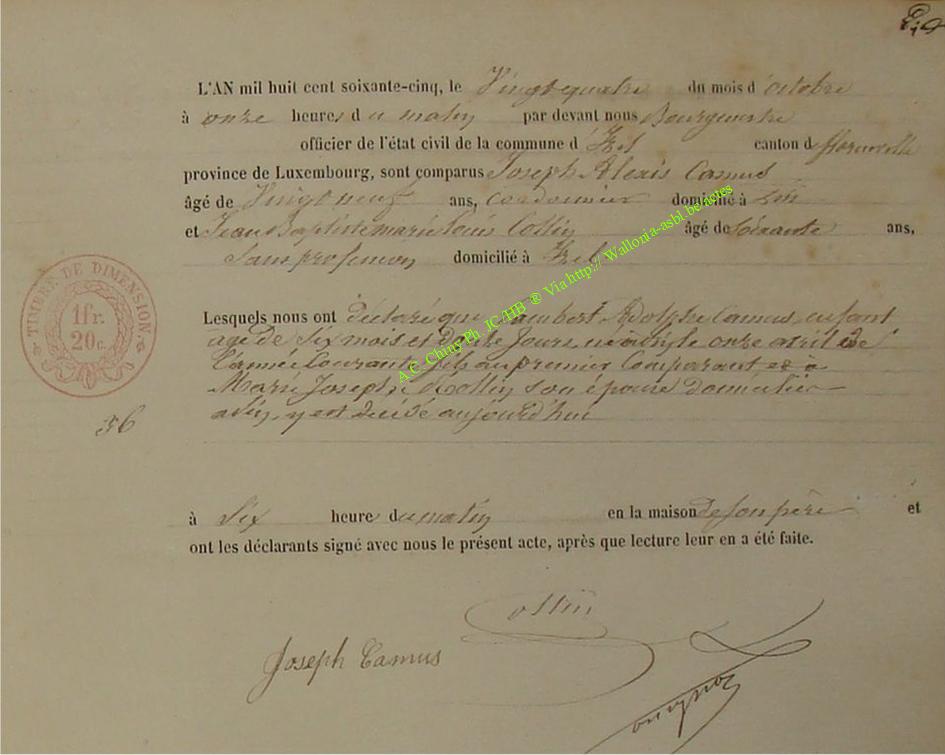 L'AN mil huit cent soixante-cinq, le Vingt quatre du mois d'octobre
à onze heures du matin par devant nous Bourgmestre
officier de l'état civil de la commune d'Izel canton d florenville
province de Luxembourg, sont comparus Joseph Alexis Camus
âgé de Vingt neuf ans, Cordonnier domicilié à
et Jean Baptiste marie Louis Collin âgé de soixante ans,
Sans profession domicilié à Izel
TIMBRE DE DIMENSION.
1 fr.
20 c.
Lesquels nous ont déclaré que Lambert Adolphe Camus, enfant
agé de six mois et jours, né à le onze avril de
l'année courante, fils du premier Comparant et à
Marie Joseph, Collin son épouse domicilier
y est décédé aujourd'hui
56
à Six heure du matin en la maison de son père et
ont les déclarants signé avec nous le présent acte, après que lecture leur en a été faite.
Collin
Joseph Camus
A.C. Chiny Ph. JC/HB ® Via http:// Wallonia-asbl.be/actes